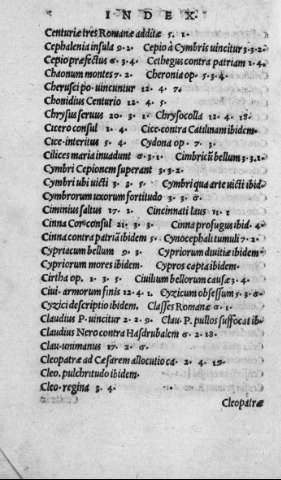 INDEX
Centuriæ tres Romanæ additæ 5. 1.
Cephalenia insula 9. 2. Cepio à Cymbris uincitur 3. 3. 2.
Cepio præfectus σ. 3. 4. Cethegus contra patriam 1. 4.
Chaonum montes 7. 2. Cheronia op. 5. 3. 4.
Cherusci po. uincuntur 12. 4. 7.
Chonidius Centurio 12. 4. 5.
Chrysus seruus 20. 3. 1. Chrysocolla 12. 4. 18.
Cicero consul 1. 4. Cice. contra Catilinam ibidem.
Cice. interitus 5. 4. Cydona op. 7. 3.
Cilices maria inuadunt σ. 3. 1. Cimbricū bellum 3. 3. 2.
Cymbri Cepionem superant 3. 3. 2.
Cymbri ubi uicti 3. 3. 5. Cymbri qua arte uicti ibid.
Cymbrorum uxorum fortitudo 3. 3. σ.
Ciminius saltus 17. 1. Cincinnati laus 11. 1
Cinna Cor. consul 21. 3. 3. Cinna profugus ibid. 4.
Cinna contra patriā ibidem 5. Cynocephali tumuli 7. 2.
Cypriacum bellum 9. 3. Cypriorum duitiæ ibidem
Cypriorum mores ibidem. Cypros capta ibidem.
Cirtha op. 1. 3. 5. Ciuilium bellorum causæ 3. 4.
Ciui. armorum finis 12. 4. 1. Cyzicum obsessum 5. 3. σ.
Cyzici descriptio ibidem. Classes Romanæ σ. 1.
Claudius P. uincitur 2. 2. 9. Clau. P. pullos suffocat ib.
Claudius Nero contra Hasdrubalem σ. 2. 18.
Clau. unimanus 17. 2. σ.
Cleopatræ ad Cæsarem allocutio ca. 2. 4. 19.
Cleo. pulchritudo ibidem.
Cleo. regina 3. 4.
Cleopatræ